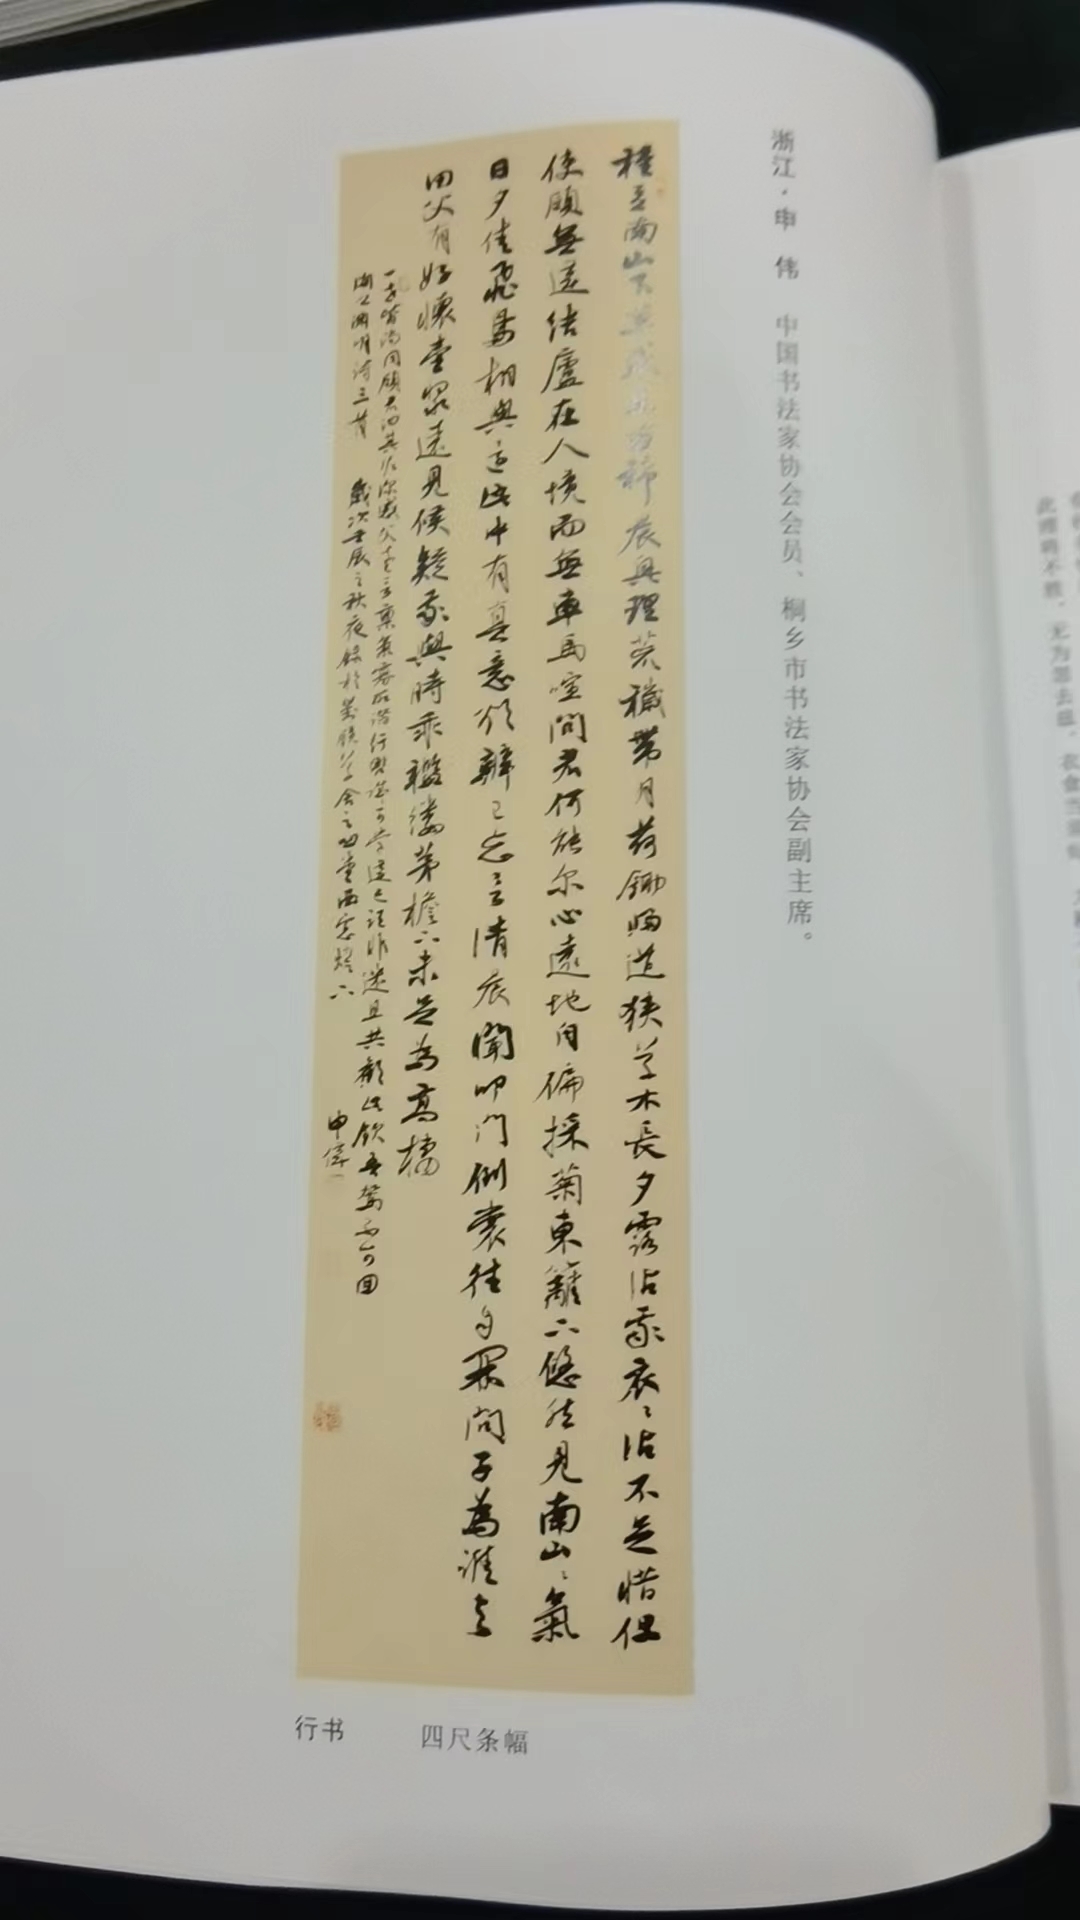 浙江·申 伟 中国书法家协会会员、桐乡市书法家协会副主席。
種豆南山下草盛豆苗稀晨興理荒穢帶月荷鋤歸道狹草木長夕露沾我衣〻沾不足惜但
使願無違結廬在人境而無車馬喧問君何能尔心遠地自偏採菊東籬下悠然見南山〻氣
日夕佳飛鳥相與還此中有真意欲辨已忘言清晨聞叩门倒裳往自開問子為誰与
田父有好懷壺漿遠見候疑我與時乖襤縷茅檐下未足為高栖
一世皆尚同願君汩其泥深感父老言稟氣寡所諧紆轡誠可學違己詎非迷且共歡此飲吾駕不可回
陶公淵明诗三首 歲次壬辰之秋夜錄於 草舍之 堂西窓燈下 申偉
行书 四尺条幅
此 不 无为